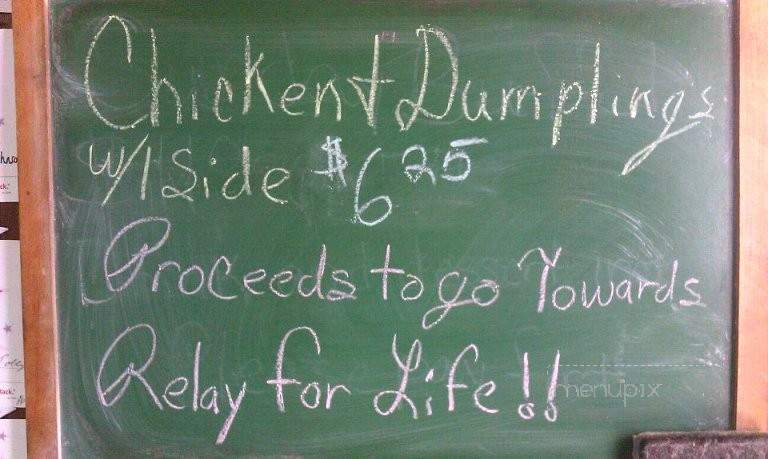 Chicken & Dumplings
w/1 Side $6 25
Proceeds to go Towards
Relay for Life!!
menupix